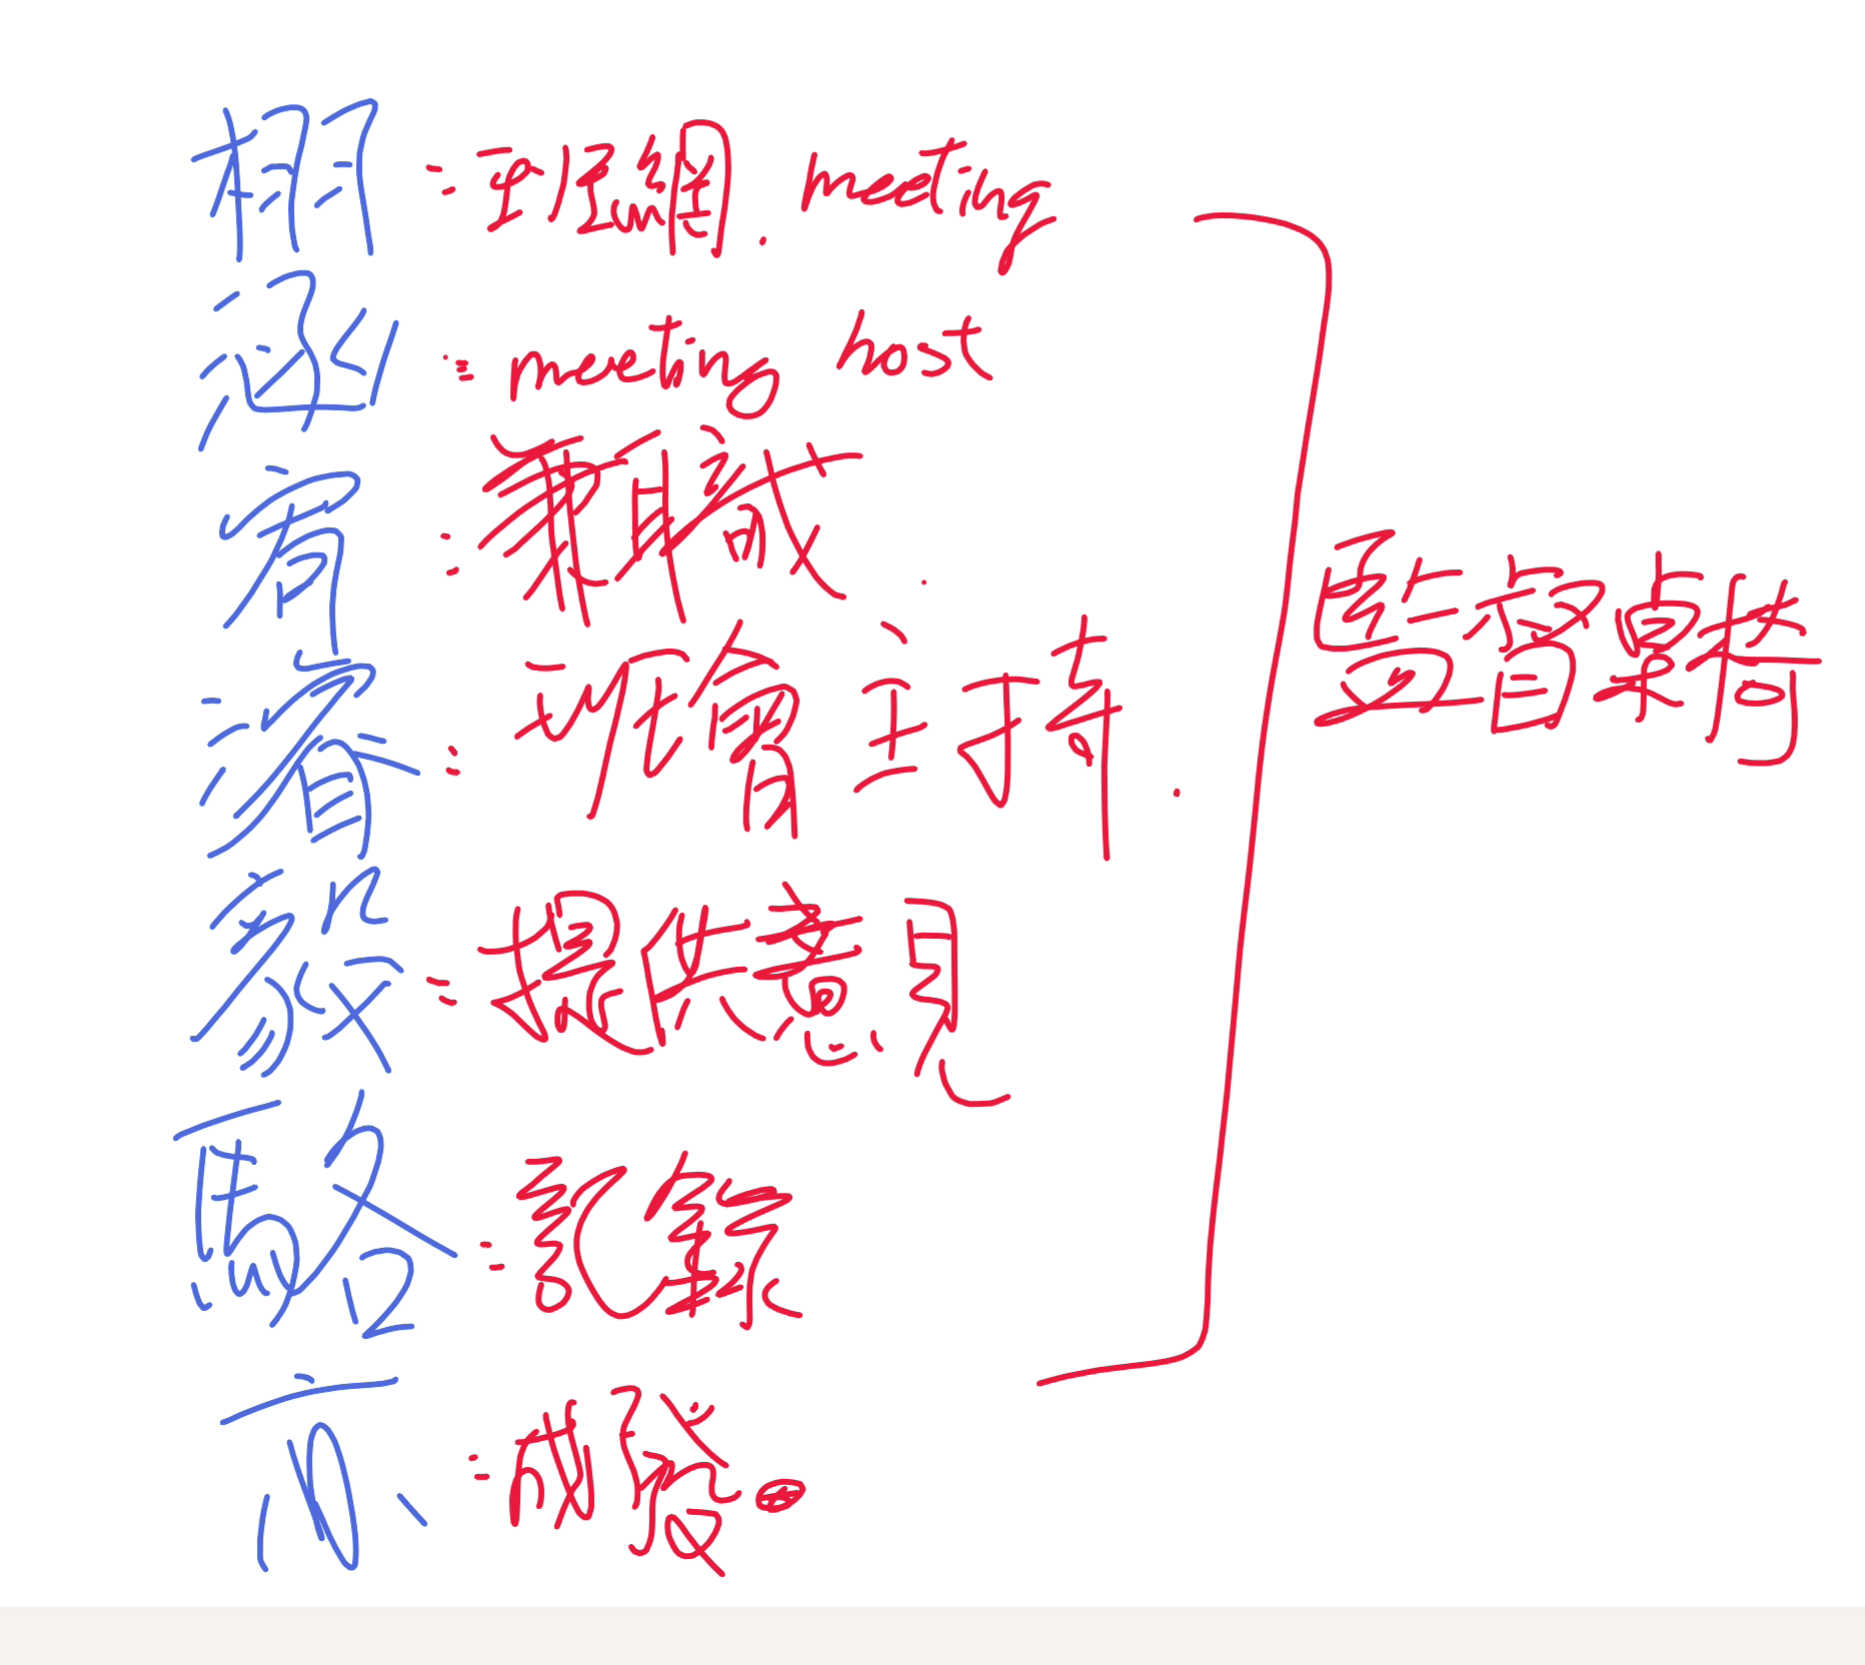 栩：班網. meeting
涵：meeting host
宥：兼職.
濬：班會主持.
毅：提供意見
駱：記錄
亦：成發
監督幹